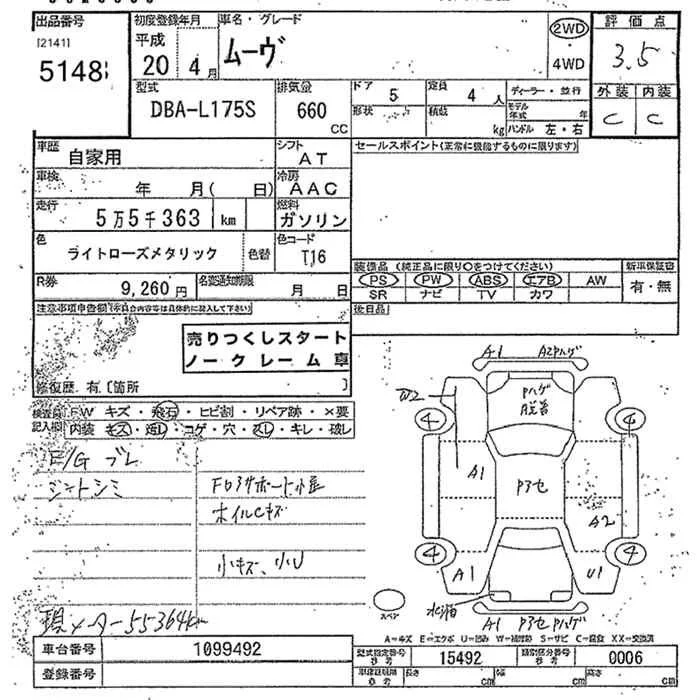 出品番号
[2141]
5148
初度登録年月
平成
20 4月
車名・グレード
ムーヴ
2WD
・
4WD
評価点
3.5
外装 内装
C C
型式
DBA-L175S
排気量
660
CC
ドア
5
定員
4人
形状
積載
kg
ディーラー・並行
モデル年式
年
ハンドル 左・右
車歴
自家用
シフト
AT
セールスポイント(正常に機能するものに限ります)
車検
年 月( 日)
冷房
AAC
走行
5万5千363 km
燃料
ガソリン
色
ライトローズメタリック
色替
色コード
T16
装備品 (純正品に限り○をつけてください)
PS PW ABS エアB AW
SR ナビ TV カワ
新車保証書
有・無
R券
9,260円
名変通知期限
月 日
後日品
注意事項申告欄
売りつくしスタート
ノークレーム車
修復歴 有〔箇所 〕
検査員記入欄
FW キズ・飛石・ヒビ割・リペア跡・×要
内装 キズ・汚レ・コゲ・穴・スレ・キレ・破レ
E/G ブレ
シートシミ
ホイルCキズ
小キズ、小U
現メーター55364km
A1
A2Pハゲ
W2
Pハゲ
4
A1
Pアセ
A2
4
4
A1
U1
スペア
A1 Pアセ Pハゲ
A=キズ E=エクボ U=凹み W=補修跡 S=サビ C=腐食 XX=交換済
車台番号
1099492
登録番号
型式指定番号
参考
15492
類別区分番号
参考
0006
車庫証明用
参考
長さ cm
幅 cm
高さ cm